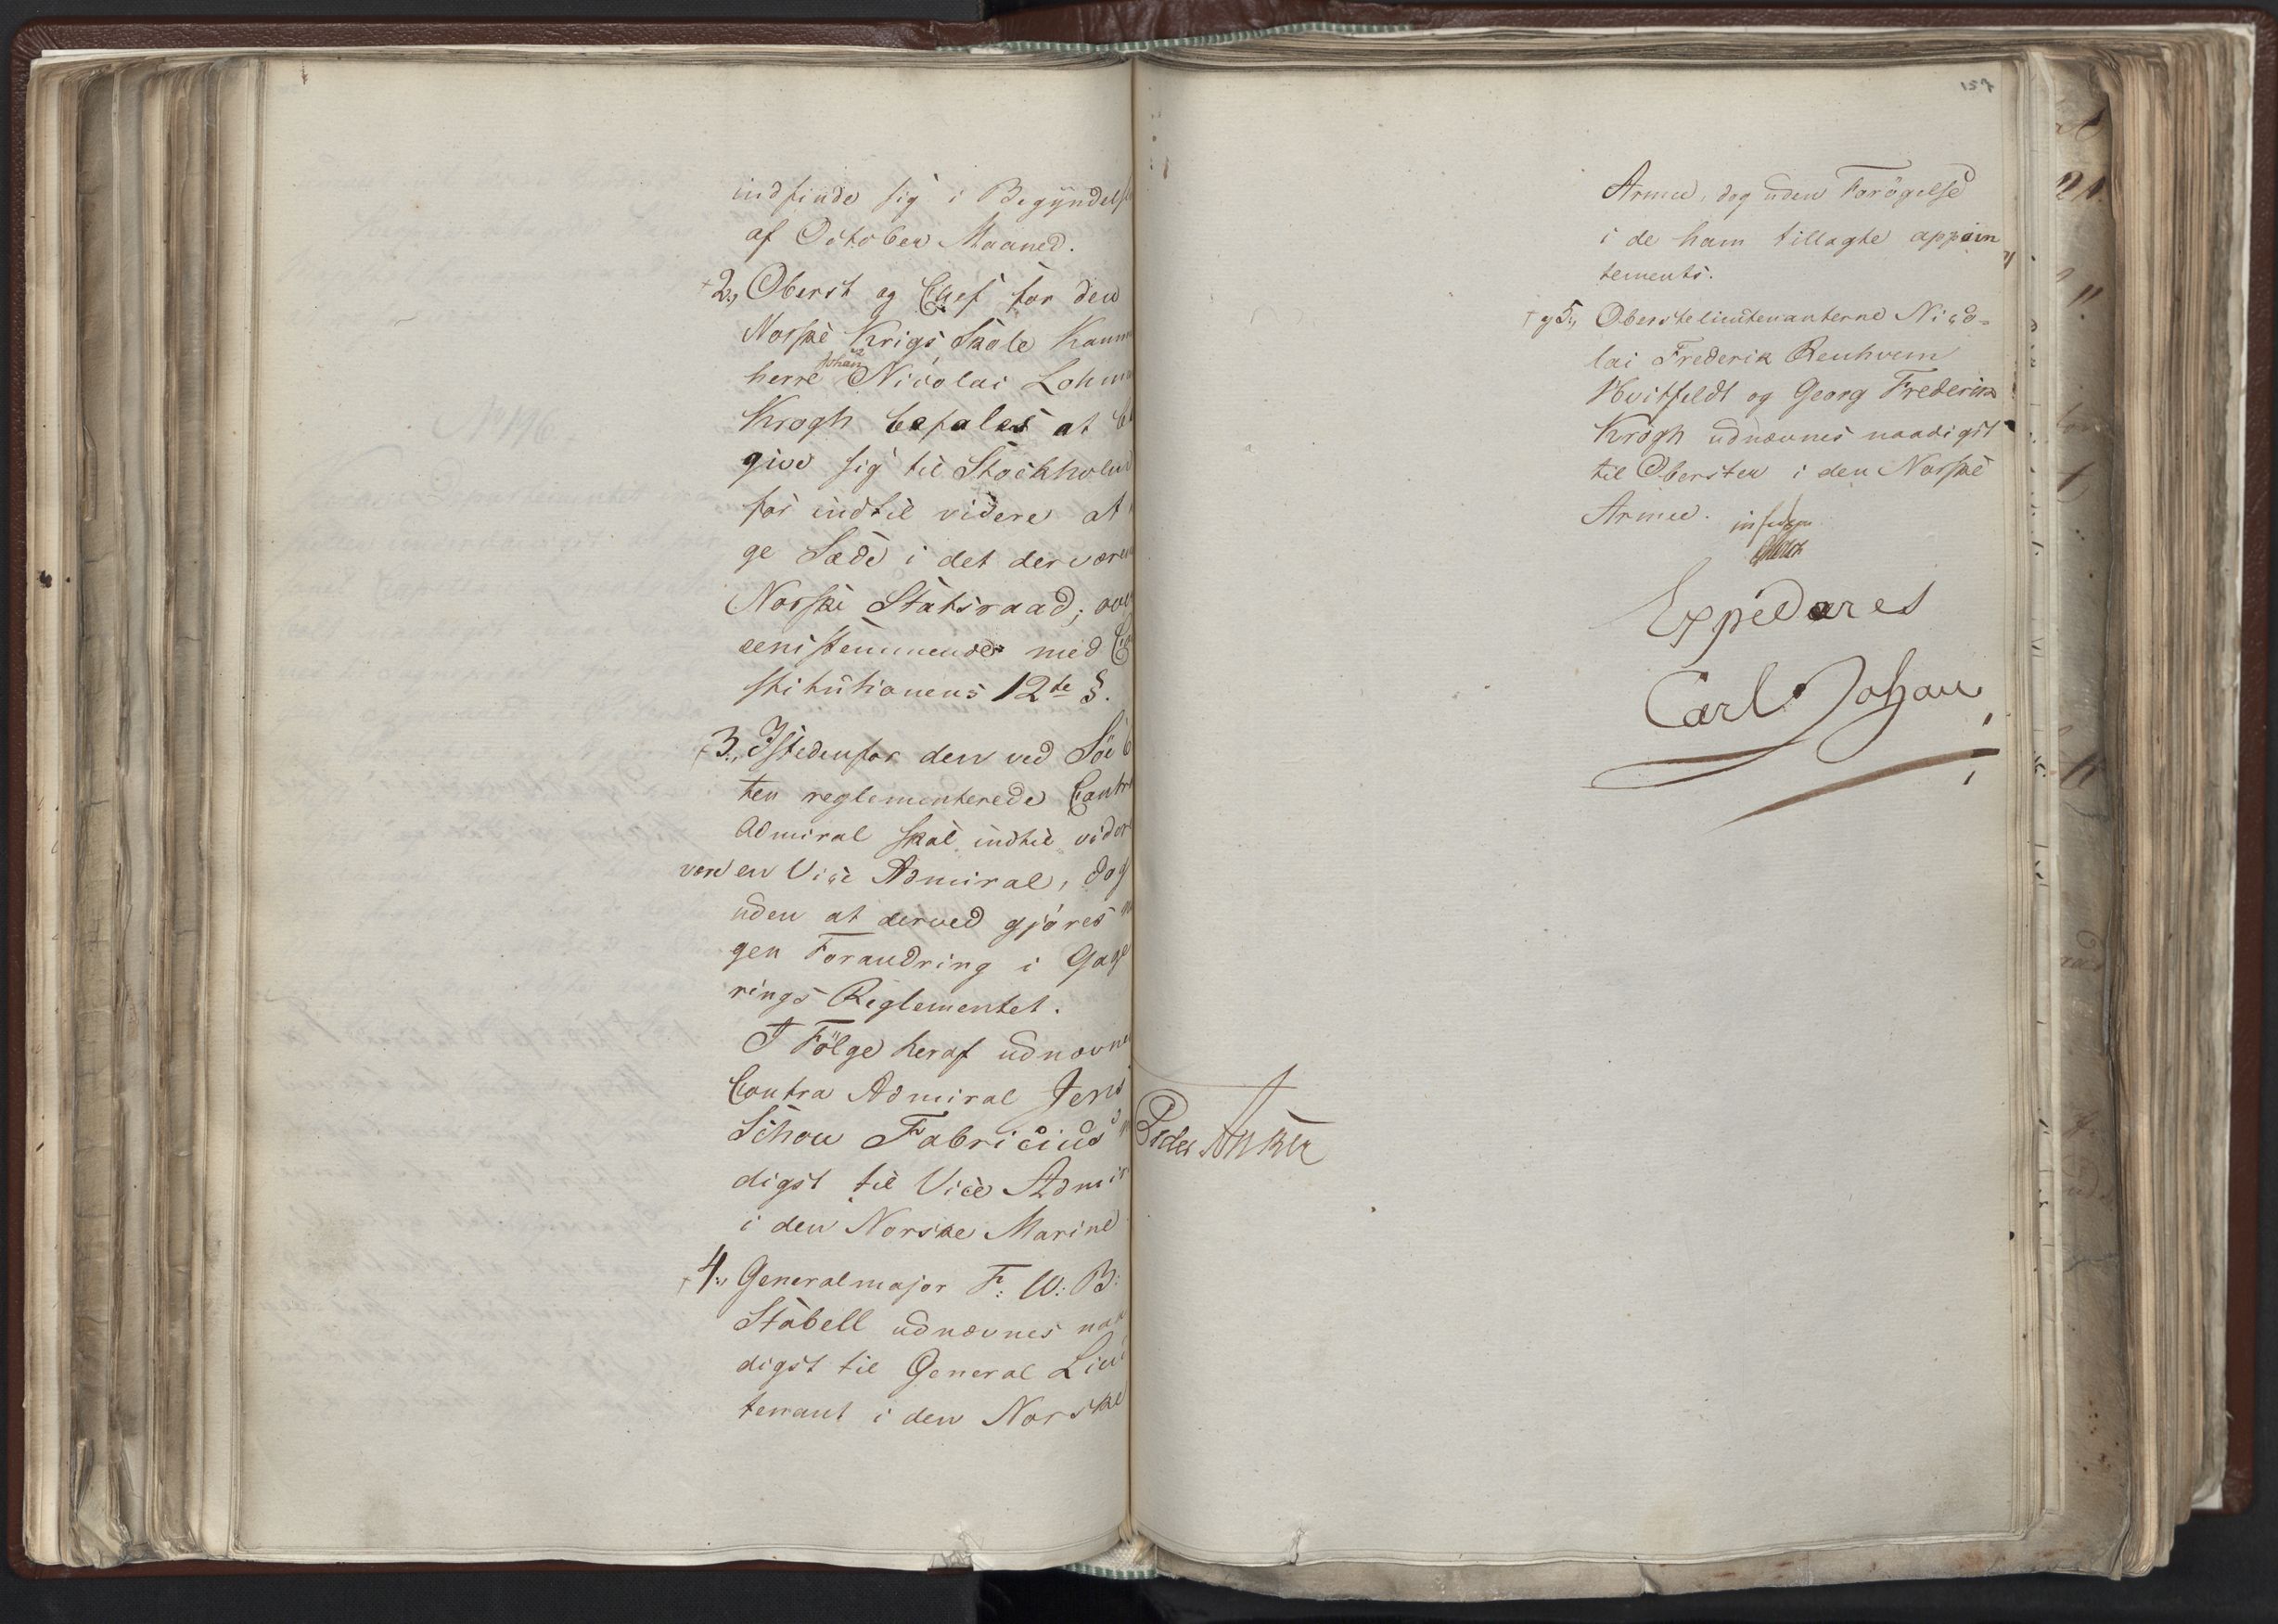 indfinde sig i Begyndels
af October Maaned.
+2., Oberst og Chef for den
Norske Krigs Skole Kamm
herre Johan Nicolai Lohm
Krogh befales at be
give sig til Stockholm
for indtil videre at
ge Sæde i det derværen
Norske Statsraad; ove
eenistemmende med Co
stitutionens 12te §.
+3., Istedenfor den ved Söe E
ten reglementerede Contra
Admiral skal indtil vider
være en Vice Admiral, dog
uden at derved gjöres
gen Forandring i Gage
rings Reglementet.
I Fölge heraf udnævne
Contra Admiral Jens
Schou Fabricius
digst til Vice Admir
i den Norske Marine
+4., Generalmajor F: W: B:
Stabell udnævnes naa
digst til General Lieu
tenant i den Norske
157
Armee, dog uden Forögelse
i de ham tillagte appoin
tements.
+ og 5., Oberstelieutenanterne Nico-
lai Frederik
Hvitfeldt og Georg Frederik
Krogh udnævnes naadigst
til Oberster i den Norske
Armee.
Expederes
Carl Johan
Peder Anker